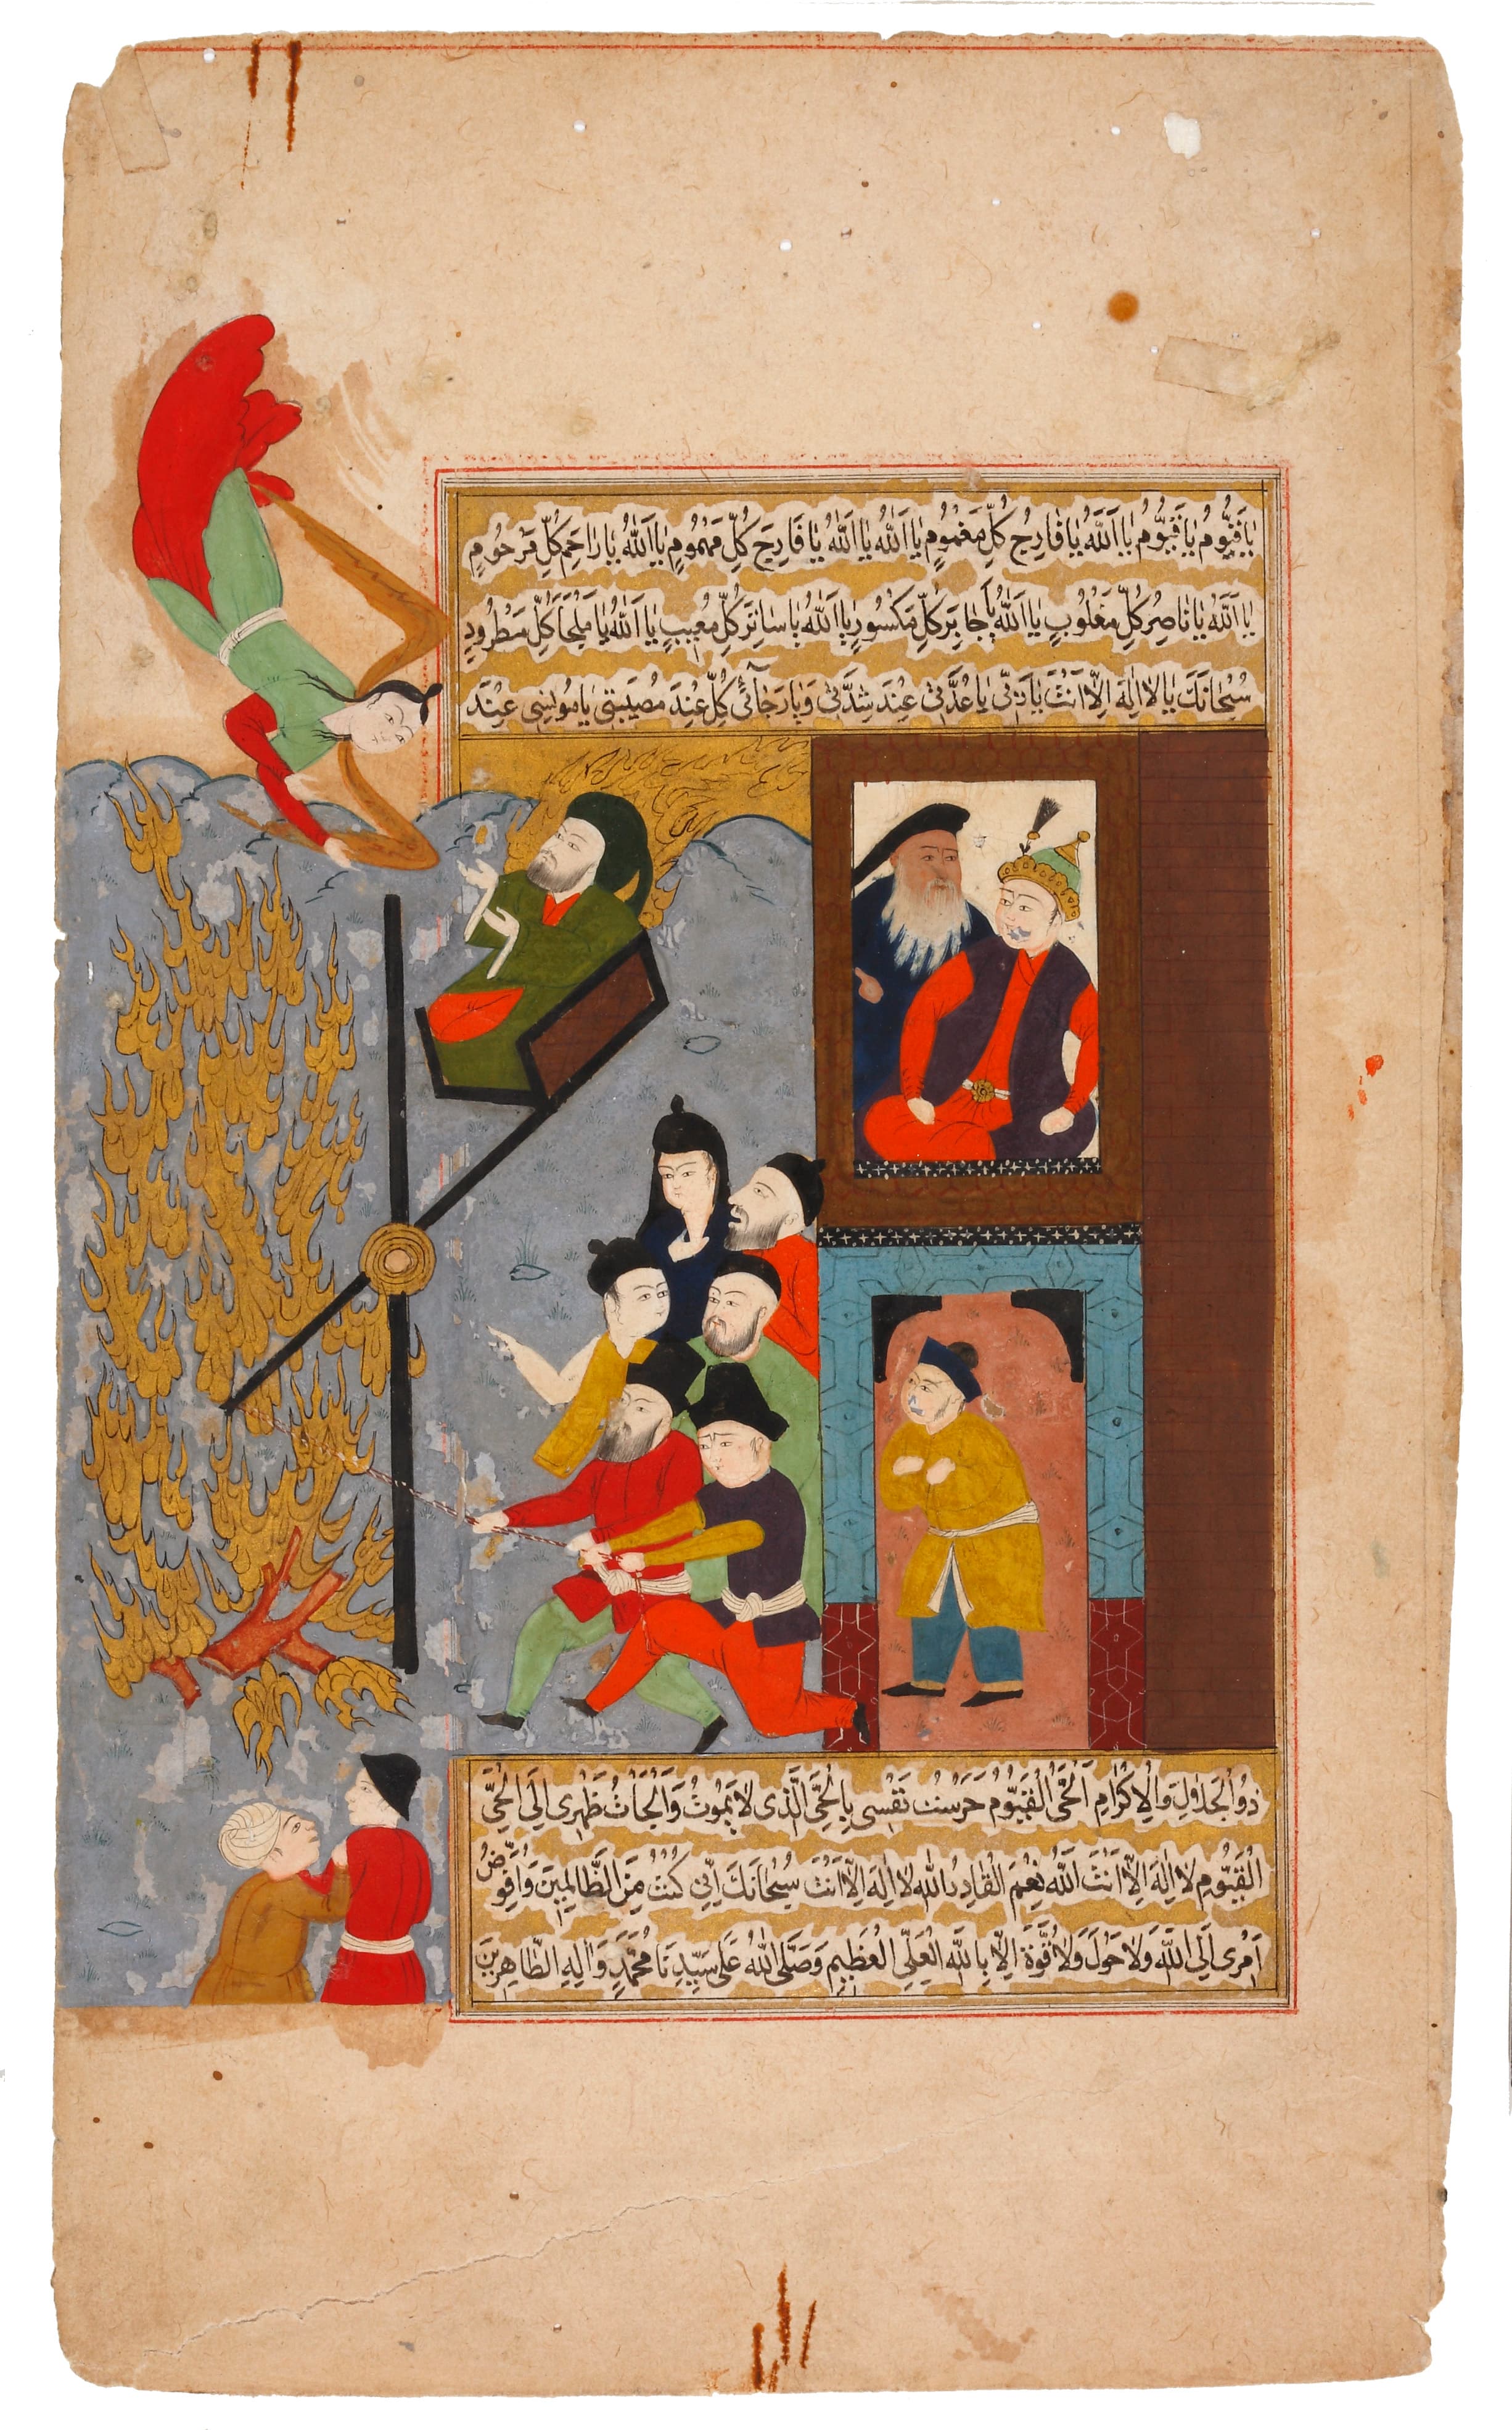 يَا قَيُّومُ يَا قَيُّومُ يَا اَللّٰهُ يَا فَارِجُ كُلِّ مَغْمُومٍ يَا اَللّٰهُ يَا اَللّٰهُ يَا فَارِجَ كُلِّ مَهْمُومٍ يَا اَللّٰهُ يَا رَاحِمَ كُلِّ مَرْحُومٍ
يَا اَللّٰهُ يَا نَاصِرُ كُلِّ مَغْلُوبٍ يَا اَللّٰهُ يَا جَابِرَ كُلِّ مَكْسُورٍ يَا اَللّٰهُ يَا سَاتِرَ كُلِّ مَعْيُبٍ يَا اَللّٰهُ يَا مَلْجَأَ كُلِّ مَطْرُودٍ
سُبْحَانَكَ يَا لَا اِلٰهَ اِلَّا اَنْتَ يَا رَبِّي يَا عُدَّتِي عِنْدَ شِدَّتِي وَيَا رَجَآئِي كُلِّ عِنْدَ مُصِيبَتِي يَا مُونِسِي عِنْدَ
ذُو الْجَلَالِ وَالْاِكْرَامِ اَلْحَيُّ الْقَيُّومُ حَرَسْتُ نَفْسِي بِالْحَيِّ الَّذِي لَا يَمُوتُ وَاَلْجَأْتُ ظَهْرِي اِلَى الْحَيِّ
الْقَيُّومِ لَا اِلٰهَ اِلَّا اَنْتَ اَللّٰهُ نِعْمَ الْقَادِرُ اللّٰهُ لَا اِلٰهَ اِلَّا اَنْتَ سُبْحَانَكَ اِنِّي كُنْتُ مِنَ الظَّالِمِينَ وَاُفَوِّضُ
اَمْرِي اِلَى اللّٰهِ وَلَا حَوْلَ وَلَا قُوَّةَ اِلَّا بِاللّٰهِ الْعَلِيِّ الْعَظِيمِ وَصَلَّى اللّٰهُ عَلَى سَيِّدِنَا مُحَمَّدٍ وَاٰلِهِ الطَّاهِرِينَ